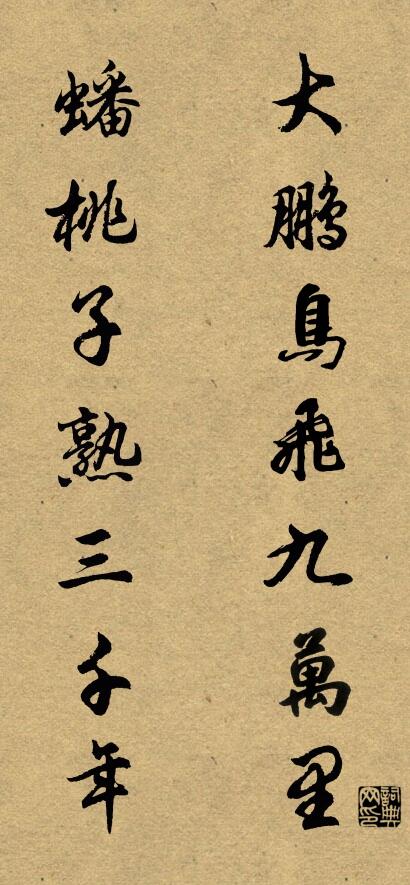 大鹏鳥飛九萬里
蟠桃子熟三千年
詞典网印